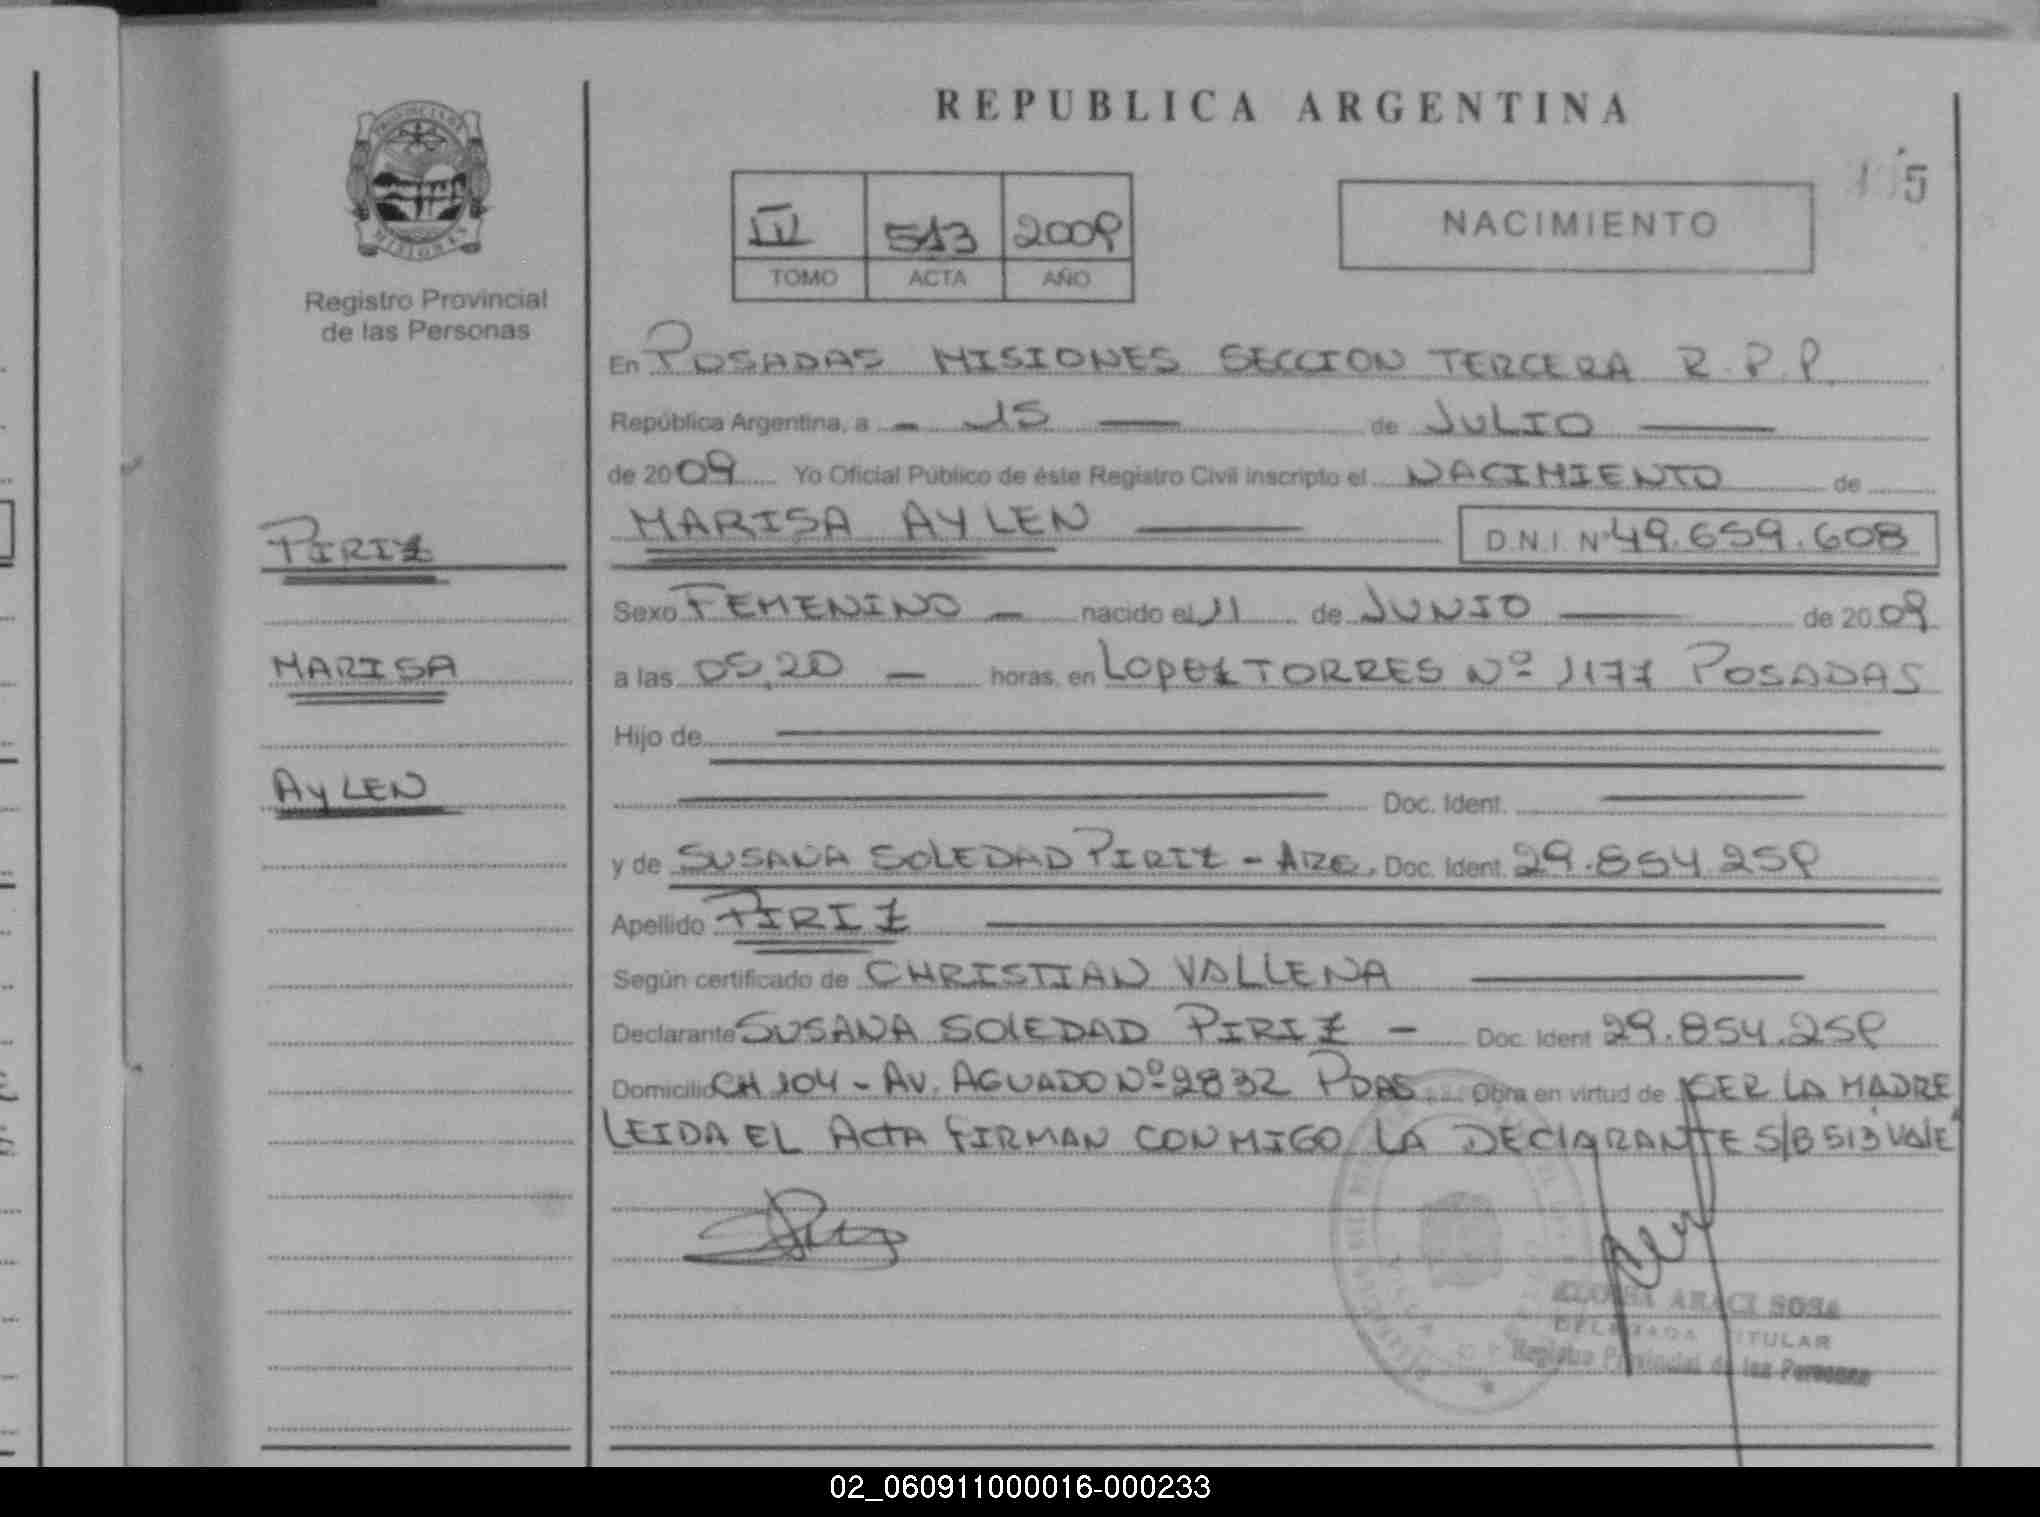 REPUBLICA ARGENTINA
PROVINCIA DE
MISIONES
Registro Provincial
de las Personas
5
III 513 2009
TOMO ACTA AÑO
NACIMIENTO
En POSADAS MISIONES SECCION TERCERA R.P.P.
República Argentina, a - 15 — de JULIO —
de 2009 Yo Oficial Público de éste Registro Civil inscripto el NACIMIENTO de
PIRIZ
MARISA AYLEN — D.N.I. Nº 49.659.608
Sexo FEMENINO — nacido el 11 de JUNIO — de 2009
MARISA
a las 05,20 — horas, en LOPEZ TORRES Nº 1177 POSADAS
Hijo de
AYLEN
Doc. Ident.
y de SUSANA SOLEDAD PIRIZ - ARG. Doc. Ident. 29.854.259
Apellido PIRIZ
Según certificado de CHRISTIAN VALLENA
Declarante SUSANA SOLEDAD PIRIZ - Doc. Ident 29.854.259
Domicilio CH 104 - AV. AGUADO Nº 2832 PDAS Obra en virtud de SER LA MADRE
LEIDA EL ACTA FIRMAN CONMIGO LA DECLARANTE S/B 513 VALE
ARACI SOSA
DELEGADA TITULAR
Registro Provincial de las Personas
02_060911000016-000233